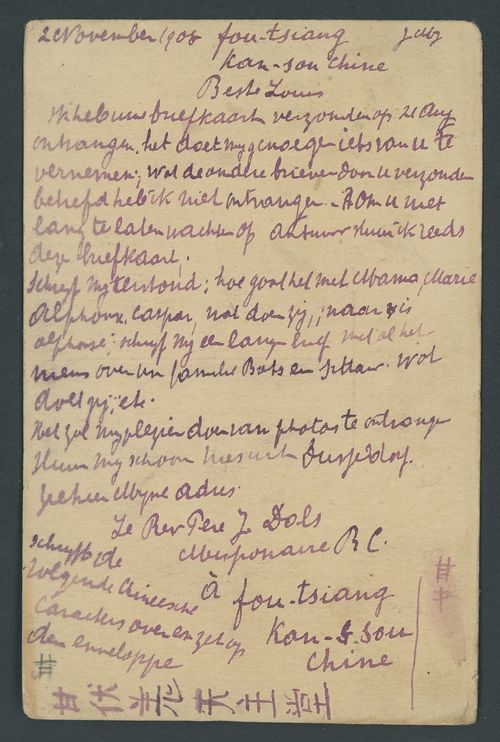 2 November 1906 fou-tsiang
Kan-sou Chine
Beste Louis
Ik heb uwe briefkaart verzonden op 21 Aug
ontvangen, het doet my genoegen iets van u te
vernemen; wat de andere brieven door u verzonden
betreft heb ik niet ontvangen. - Om u niet
lang te laten wachten op antwoord stuur ik reeds
deze briefkaart;
Schryf my terstond; hoe gaat het met Mama, Marie
Alphons, Caspar, wat doen zy; waar is
alphonse; schryf my een langen brief met al het
nieuws over uw familie Bots en Sittard. Wat
doet gy, etc.
Het zal my plezier doen van photos te ontvangen
Stuur my schoon uit Dusseldorf.
Ziehier Myne adres
Le Rev Pere J. Dols
Missionaire R C.
À fou-tsiang
Kan-Sou
Chine
Schryft de
volgende chineesche
caracters over en zet op
den enveloppe
甘 伏 羌 天 主 堂
甘